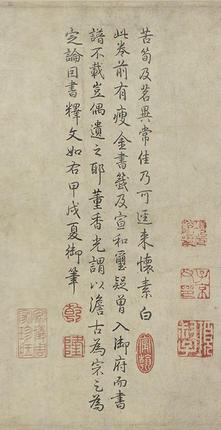 苦筍及茗異常佳乃可逕來懷素白
此券前有瘦金書籤及宣和璽疑曾入御府而書
譜不載豈偶遺之耶董香光謂以澹古為宗之為
定論因書釋文如右甲戌夏御筆
乾
隆